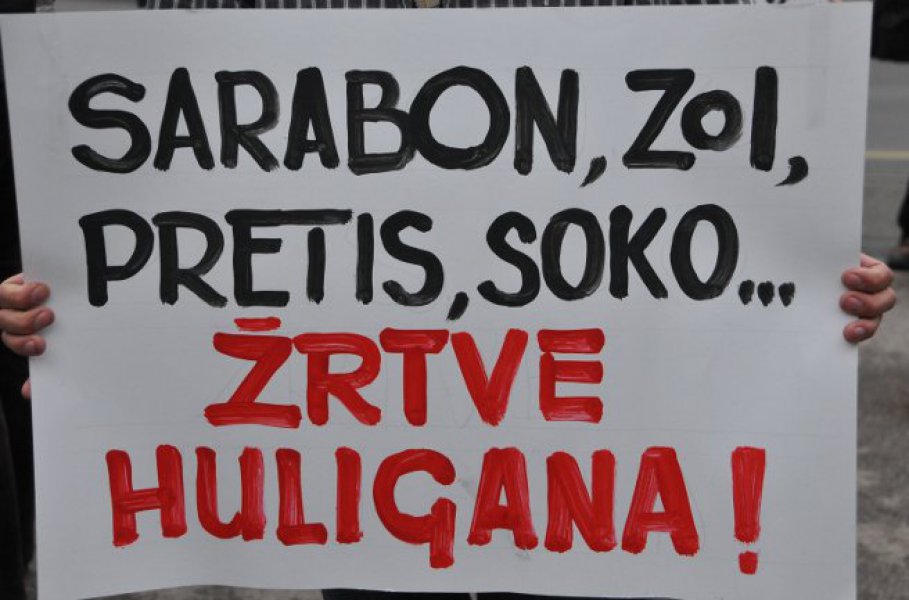 SARABON, ZOI,
PRETIS, SOKO...
ŽRTVE
HULIGANA!